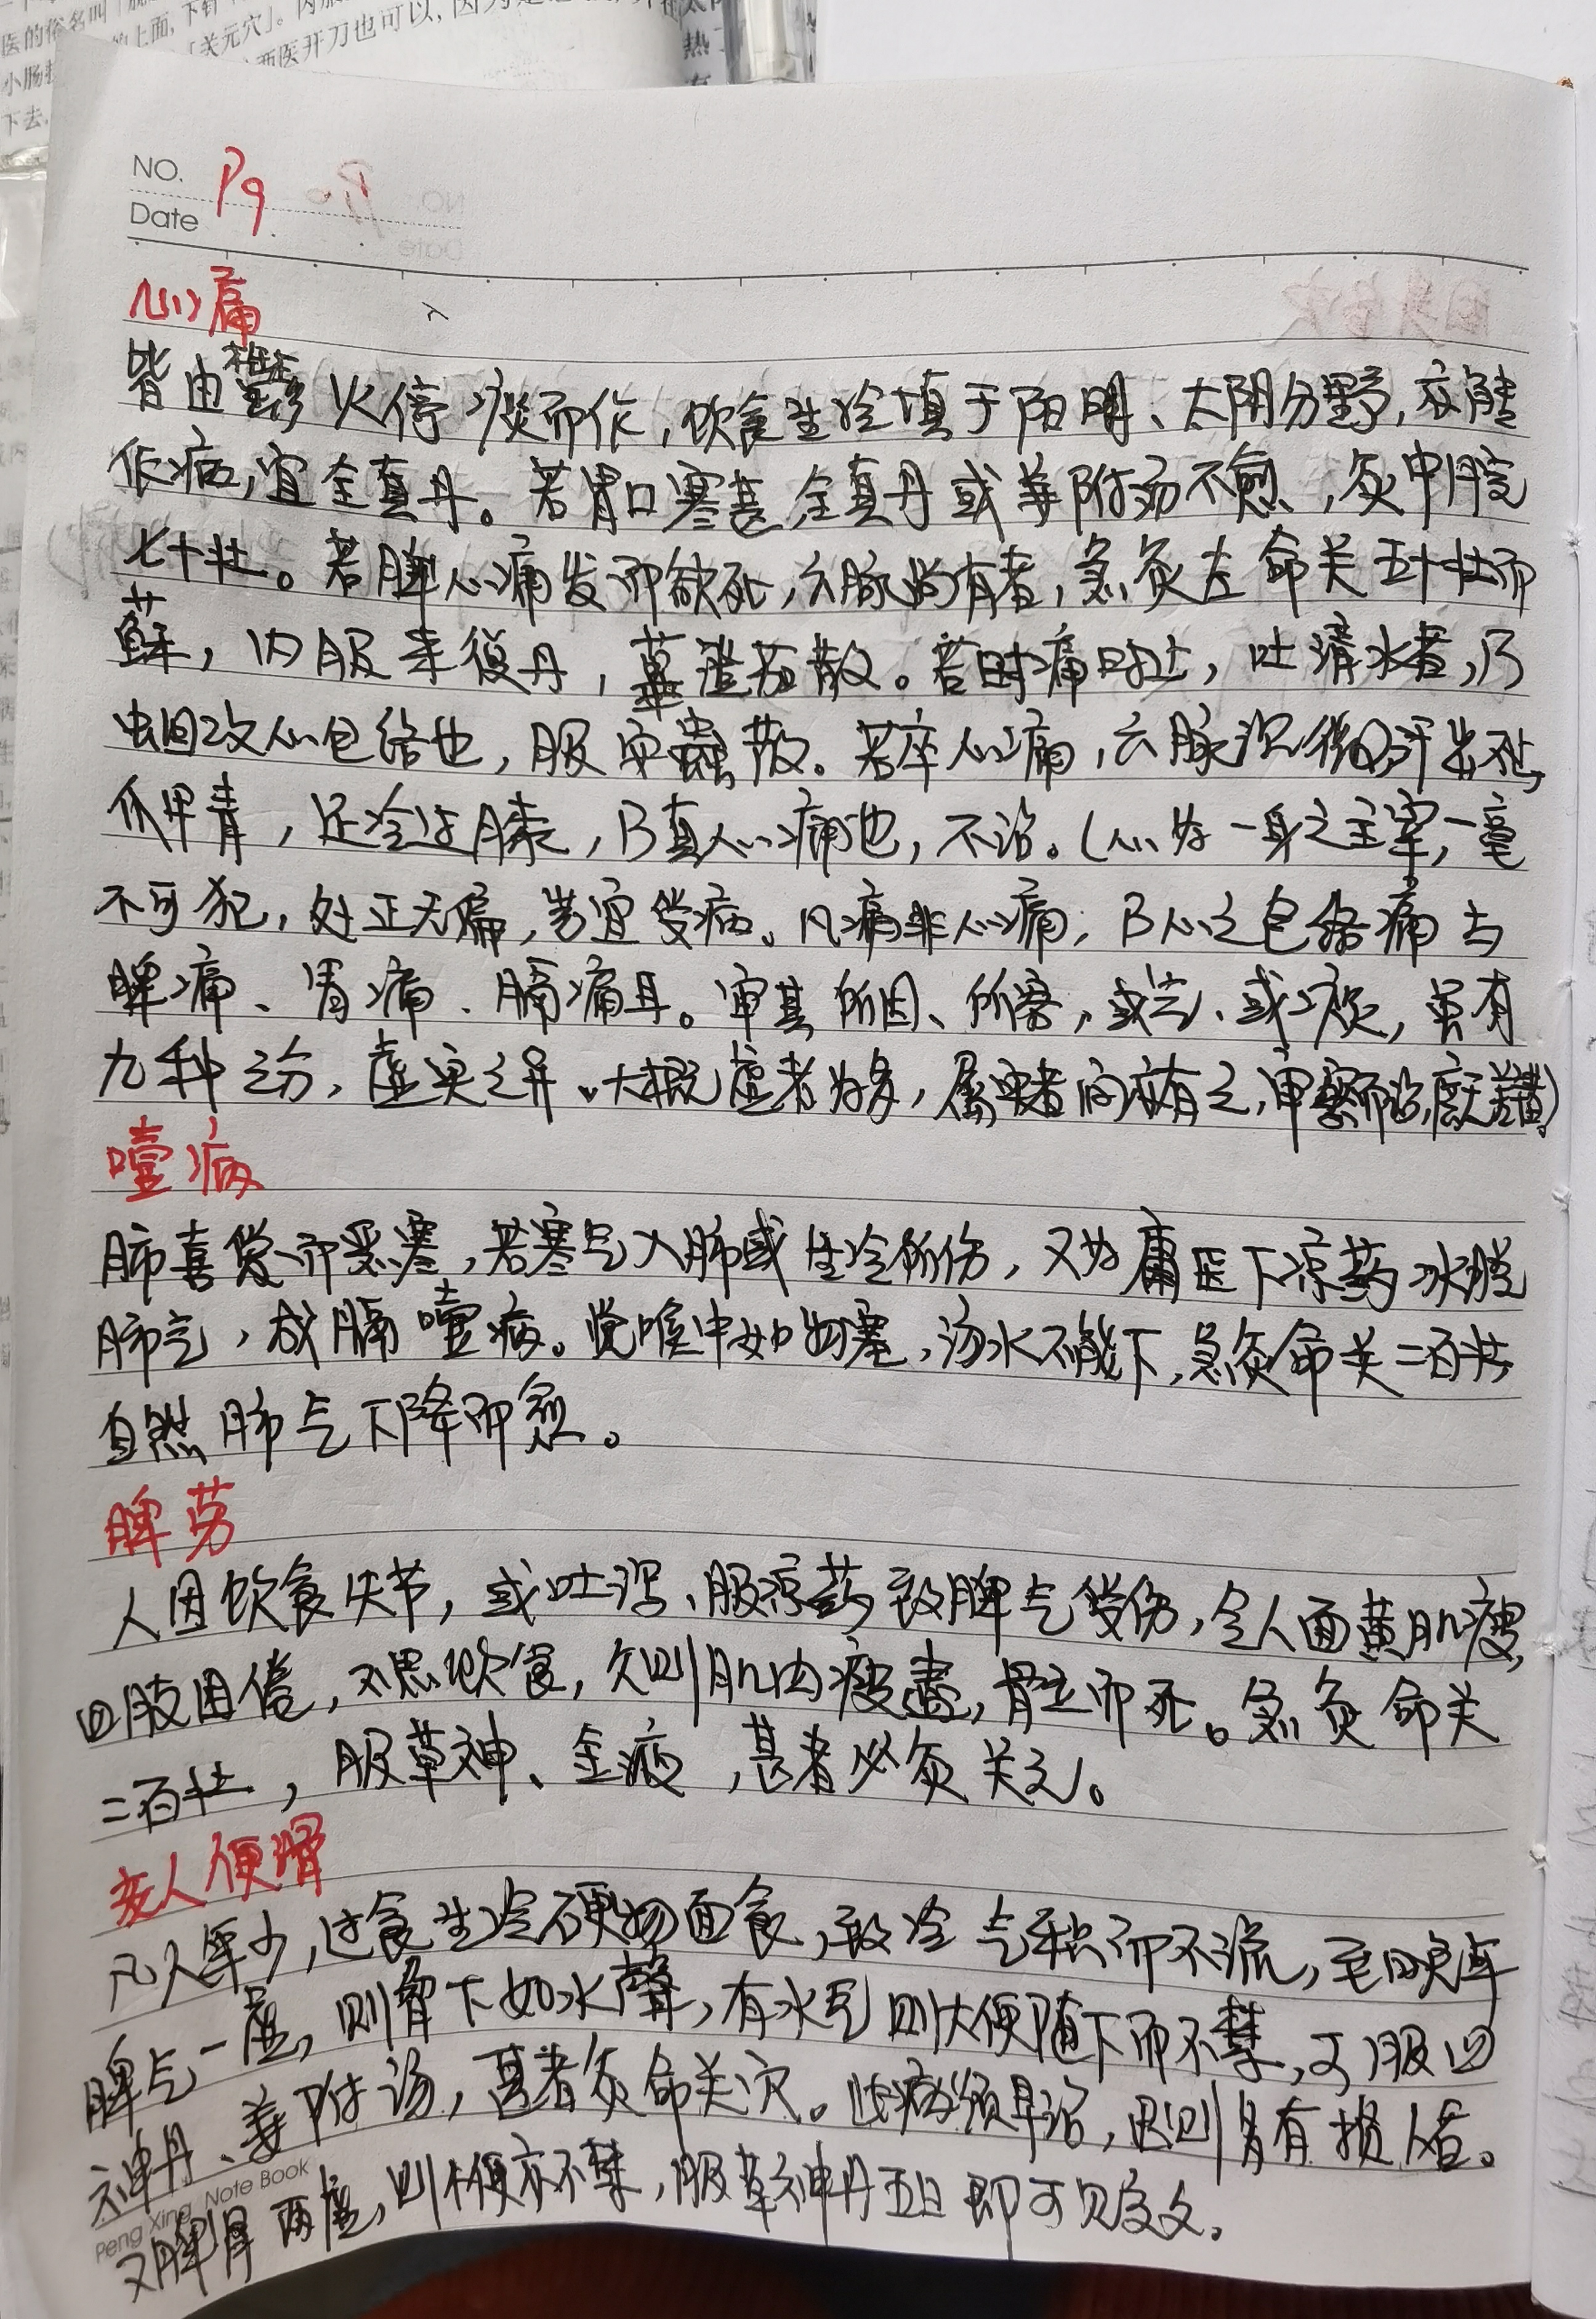 医的俗名叫
的上面,下针
「关元穴」。内服
西医开刀也可以,因为
小肠
下去。
热
NO. P9
Date
心痛
皆由鬱火停痰而作,饮食生冷填于阳明、太阴分野,亦能
作病,宜全真丹。若胃口寒甚,全真丹或姜附汤不愈,灸中脘
七十壮。若脾心痛发而欲死,六脉尚有者,急灸左命关五十壮而
蘇,内服来復丹,蓽澄茄散。若时痛时止,吐清水者,乃
蛔攻心包络也,服安蟲散。若卒心痛,六脉沉微,汗出不止,
爪甲青,足冷过膝,乃真心痛也,不治。(心为一身之主宰,一毫
不可犯,处正无偏,岂宜受病。凡痛非心痛,乃心之包络痛与
脾痛、胃痛、膈痛耳。审其所因、所客,或气、或痰,虽有
九种之分,虚实之异。大概虚者为多,属实者间亦有之,审察而治,庶无差错)
噎病
肺喜暖而恶寒,若寒气入肺或生冷所伤,又为庸医下凉药冰脱
肺气,成膈噎病。觉喉中如物塞,汤水不能下,急灸命关二百壮,
自然肺气下降而愈。
脾劳
人因饮食失节,或吐泻、服凉药致脾气受伤,令人面黄肌瘦,
四肢困倦,不思饮食,久则肌肉瘦盡,骨立而死。急灸命关
二百壮,服草神、金液,甚者必灸关元。
老人便滑
凡人年少,过食生冷硬物面食,致冷气积而不流,至晚年
脾气一虚,则胃下如水聲,有水气则大便随下而不禁,可服四
神丹、姜附汤,甚者灸命关穴。此病须早治,迟则多有损人者。
又脾胃两虚,则小便亦不禁,服草神丹五日即可见效。
Peng Xing Note Book